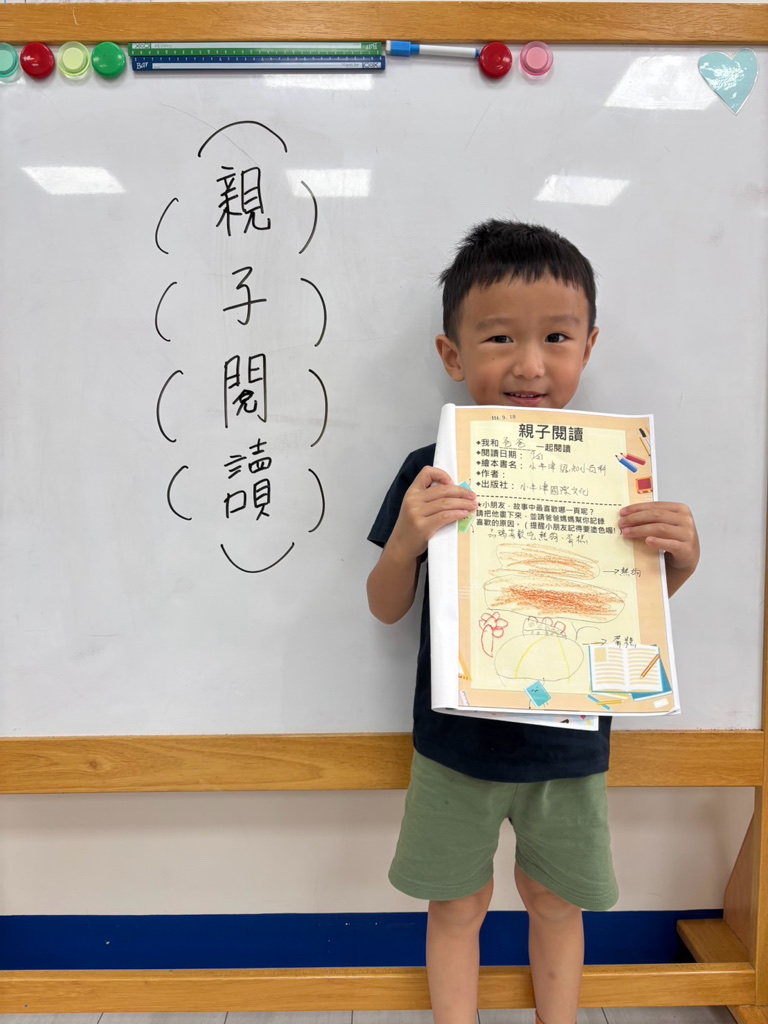 親
子
閱
讀
114. 9. 18
親子閱讀
★我和 爸爸 一起閱讀
★閱讀日期：
★繪本書名：小牛津認知小百科
★作者：
★出版社：小牛津國際文化
★小朋友，故事中最喜歡哪一頁呢？
請把他畫下來，並請爸爸媽媽幫你記錄
喜歡的原因。（提醒小朋友記得要塗色喔！）
喜歡吃熱狗、蛋糕
→熱狗
→蛋糕